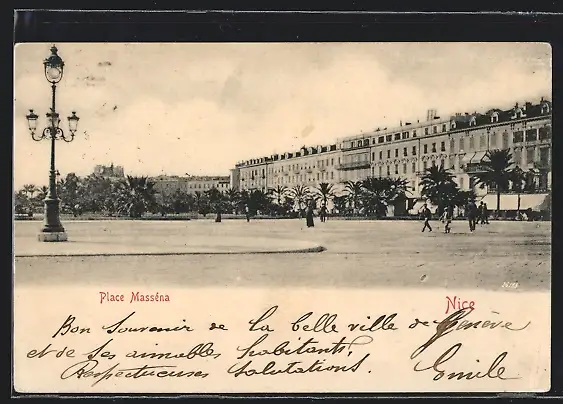 Place Masséna
Nice
Bon Souvenir de la belle ville de Genève
et de ses aimables habitants,
Respectueuses salutations.
Emile